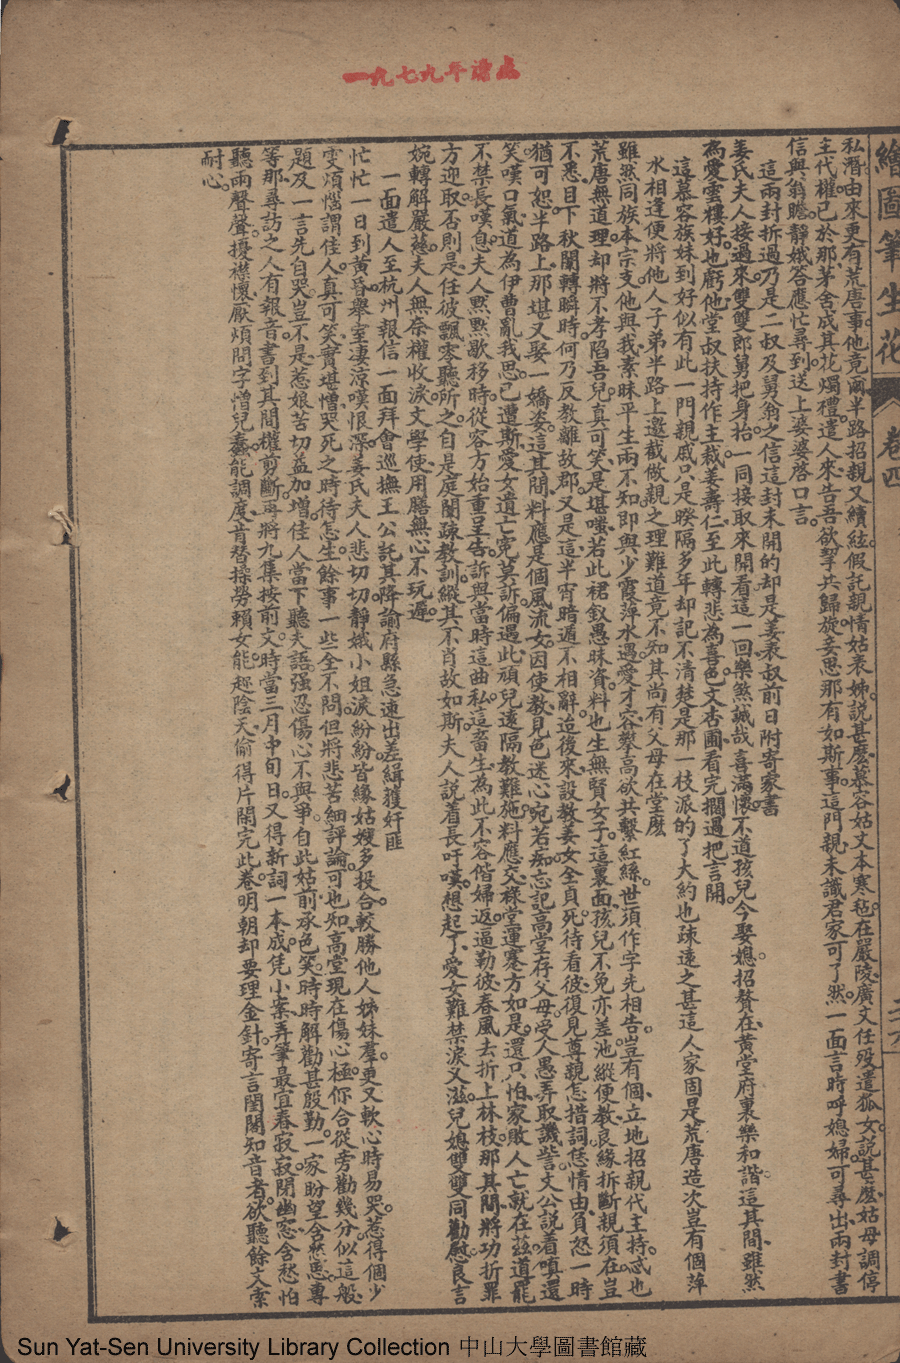 一九七九年清点
繪圖筆生花
卷四
私潛。由來更有荒唐事。他竟爾半路招親又續絃。假託親情姑表姊。說甚麽慕容姑丈本寒毡。在嚴陵廣文任歿遺孤女。說甚麽姑母調停
主代權。已於那茅舍成其花燭禮。遣人來告吾欲挈共歸旋。妾思那有如斯事。這門親未識君家可了然。一面言時呼媳婦。可尋出兩封書
信與翁瞻。靜娥答應忙尋到。送上婆婆啓口言。
這兩封折過乃是二叔及舅翁之信這封未開的却是姜表叔前日附寄家書
姜氏夫人接過來。雙雙郎舅把身抬。一同接取來開看。這一回樂煞誠哉喜滿懷。不道孩兒今娶媳。招贅在黄堂府裏樂和諧。這其間雖然
爲愛雲樓好。也虧他堂叔扶持作主裁。姜壽仁至此轉悲爲喜色。文杏圃看完擱過把言開。
這慕容族妹到好似有此一門親戚只是暌隔多年却記不清楚是那一枝派的了大約也疎遠之甚這人家固是荒唐造次豈有個萍
水相逢便將他人子弟半路上邀截做親之理難道竟不知其尚有父母在堂麽
雖然同族本宗支。他與我素昧平生兩不知。即與少霞萍水遇。愛才容攀高欲共繫紅絲。世須作字先相告。豈有個立地招親代主持。忒也
荒唐無道理。却將不孝陷吾兒。真可笑是堪嗤。若此裙釵愚昧資。料也生無賢女子。這裏面孩兒不免亦差池。縱便教良緣拆斷親須在。豈
不悉目下秋闈轉瞬時。何乃反教離故郡。又是這半宵暗遁不相辭。迨後來設教姜女全貞死。待看彼復見尊親怎措詞。恁情由負怒一時
猶可恕。半路上那堪又娶一嬌姿。這其間料應是個風流女。因使教見色迷心宛若痴。忘記高堂存父母。受人愚弄取譏訾。文公說着嗔還
笑。嘆口氣道爲伊曹亂我思。已遭斯愛女遺亡寃莫訴。偏遇此頑兒遠隔教難施。料應交祿堂運蹇方如是。還只怕家敗人亡就在茲。道罷
不禁長嘆息。夫人黙黙歇移時。從容方始重呈告。訴與當時這曲私。這畜生爲此不容偕婦返。逼勒彼春風去折上林枝。那其間將功折罪
方迎取。否則是任彼飄零聽所之。自是庭闈疎教訓。縱其不肖故如斯。夫人說着長吁嘆。想起了愛女難禁淚又滋。兒媳雙雙同勸慰。良言
婉轉解嚴慈。夫人無奈權收淚。文學使用膳無心不玩遲。
一面遣人至杭州報信一面拜會巡撫王公託其降諭府縣急速出差緝獲奸匪
忙忙一日到黃昏。舉室淒涼嘆恨深。姜氏夫人悲切切。靜娥小姐淚紛紛。皆緣姑嫂多投合。較勝他人姊妹羣。更又軟心時易哭。惹得個少
雯煩惱謂佳人。真可笑實堪憎。哭死之時待怎生。餘事一些全不問。但將悲苦細評論。可也知高堂現在傷心極。你合從旁勸幾分。似這般
題及一言先自哭。豈不是惹娘苦切益加增。佳人當下聽夫語。强忍傷心不與爭。自此姑前承色笑。時時解勸甚殷勤。一家盼望含愁思。專
等那尋訪之人有報音。書到其間權剪斷。再將九集按前文。時當三月中旬日。又得新詞一本成。凭小案弄筆最宜春寂寂。閉幽窓含愁怕
聽雨聲聲。擾襟懷厭煩問字憎兒蠢。能調度肯替操勞賴女能。趁陰天偷得片閒完此卷。明朝却要理金針。寄言閨閣知音者。欲聽餘文索
耐心。
Sun Yat-Sen University Library Collection 中山大學圖書館藏